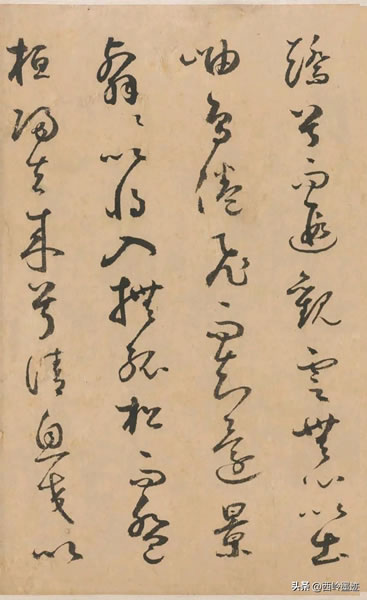 矯首而遐觀雲無心以出
岫鳥倦飛而知還景
翳々以將入撫孤松而盤
桓歸去來兮請息交以
头条 @西岭墨迹